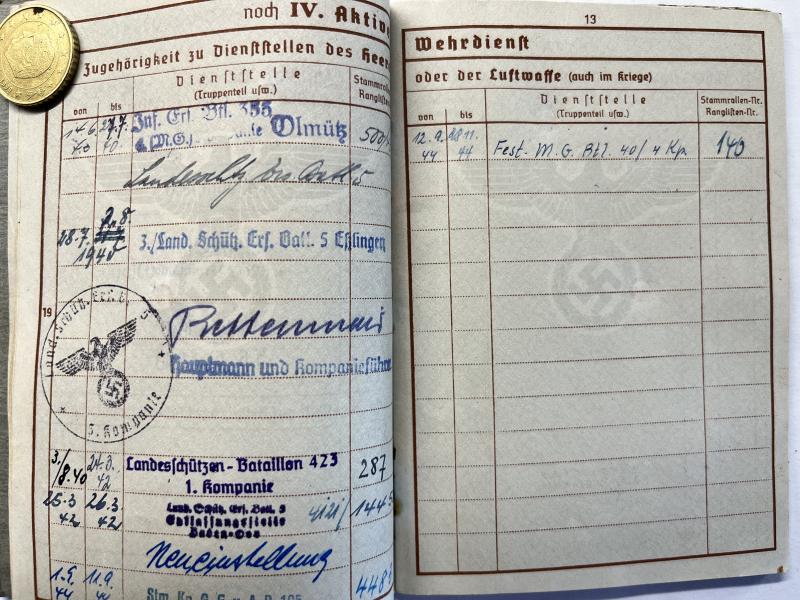 noch IV. Aktive
Zugehörigkeit zu Dienststellen des Heeres
von bis Dienststelle (Truppenteil usw.) Stammrollen Ranglisten
14.6. 40 27.7. 40 Inf. Ers. Btl. 355
(M.G.) Olmütz 500
Landesschütz Ers Batl 5
28.7. 2.8. 1940 3./Land. Schütz. Ers. Batl. 5 Eßlingen
19
Land. Schütz. Ers. B. 5
3. Kompanie
Hauptmann und Kompanieführer
3./8.40 24.3. 42 Landesschützen-Bataillon 423 287
1. Kompanie
25.3 42 26.3. 42 Land. Schütz. Ers. Batl. 5 4121/1445
Entlassungsstelle
Baden-Oos
Neueinstellung
1.9. 44 11.9. 44 448
13
Wehrdienst
oder der Luftwaffe (auch im Kriege)
von bis Dienststelle (Truppenteil usw.) Stammrollen-Nr. Ranglisten-Nr.
12.9. 44 28 11. 44 Fest. M. G. Btl. 40/4 Kp. 140